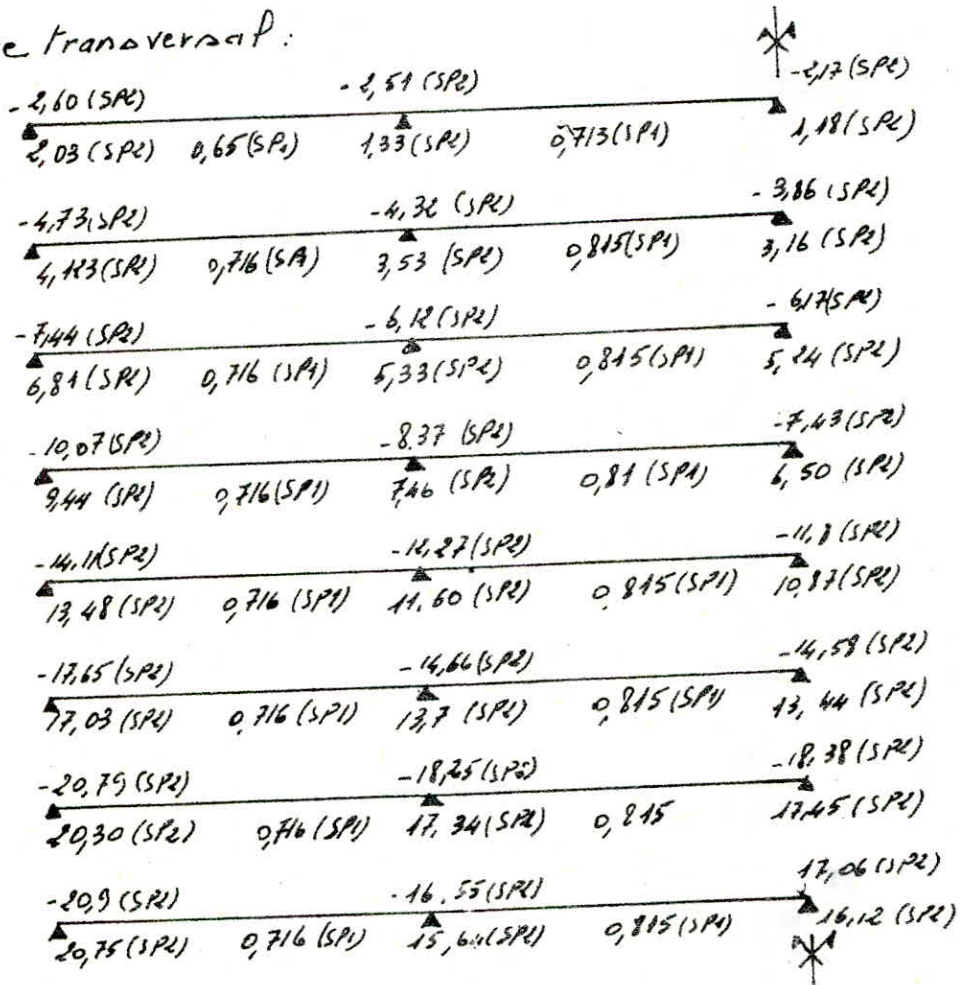 e transversal :
-2,60 (SP2) -2,51 (SP2) -2,17 (SP2)
2,03 (SP2) 0,65 (SP1) 1,33 (SP2) 0,713 (SP1) 1,18 (SP2)
-4,73 (SP2) -4,32 (SP2) -3,86 (SP2)
4,123 (SP2) 0,716 (SP1) 3,53 (SP2) 0,815 (SP1) 3,16 (SP2)
-7,44 (SP2) -6,12 (SP2) -6,17 (SP2)
6,81 (SP2) 0,716 (SP1) 5,33 (SP2) 0,815 (SP1) 5,24 (SP2)
-10,07 (SP2) -8.37 (SP2) -7,43 (SP2)
9,44 (SP2) 0,716 (SP1) 7,46 (SP2) 0,81 (SP1) 6,50 (SP2)
-14,11 (SP2) -12,27 (SP2) -11,8 (SP2)
13,48 (SP2) 0,716 (SP1) 11.60 (SP2) 0,815 (SP1) 10,87 (SP2)
-17,65 (SP2) -14,64 (SP2) -14,58 (SP2)
17,03 (SP2) 0,716 (SP1) 13,7 (SP2) 0,815 (SP1) 13,44 (SP2)
-20,79 (SP2) -18,25 (SP2) -18,38 (SP2)
20,30 (SP2) 0,716 (SP1) 17,34 (SP2) 0,815 17,45 (SP2)
-20,9 (SP2) -16,55 (SP2) 17,06 (SP2)
20,75 (SP2) 0,716 (SP1) 15,64 (SP2) 0,815 (SP1) 16,12 (SP2)